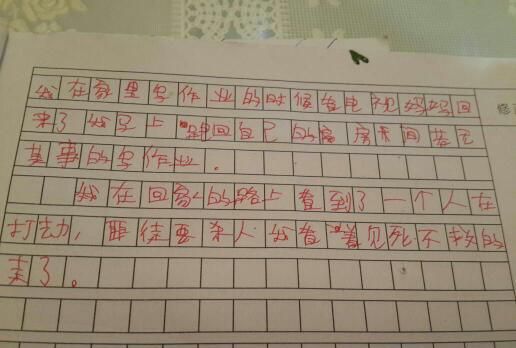 我在家里写作业的时候看电视妈妈回
来了我马上跑回自己的房间若无
其事的写作业.
我在回家的路上看到了一个人在
打劫,歹徒要杀人我看着见死不救的
走了。
修